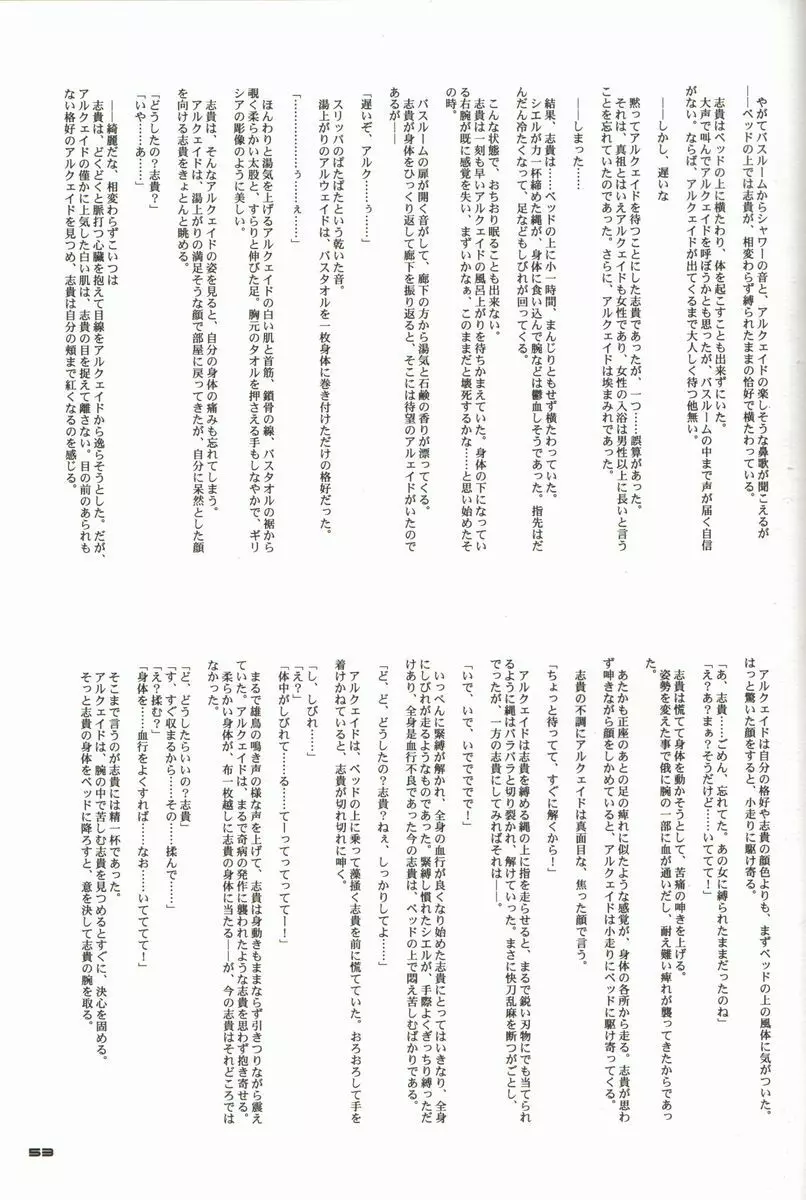 やがてバスルームからシャワーの音と、アルクェイドの楽しそうな鼻歌が聞こえるが
――ベッドの上では志貴が、相変わらず縛られたままの恰好で横たわっている。
志貴はベッドの上に横たわり、体を起こすことも出来ずにいた。
大声で叫んでアルクェイドを呼ぼうかとも思ったが、バスルームの中まで声が届く自信
がない。ならば、アルクェイドが出てくるまで大人しく待つ他無い。
――しかし、遅いな
黙ってアルクェイドを待つことにした志貴であったが、一つ……誤算があった。
それは、真祖とはいえアルクェイドも女性であり、女性の入浴は男性以上に長いと言う
ことを忘れていたのであった。さらに、アルクェイドは埃まみれであった。
――しまった……
結果、志貴は……ベッドの上に小一時間、まんじりともせず横たわっていた。
シエルが力一杯締めた縄が、身体に食い込んで腕などは鬱血しそうであった。指先はだ
んだん冷たくなって、足などもしびれが回ってくる。
こんな状態で、おちおり眠ることも出来ない。
志貴は一刻も早いアルクェイドの風呂上がりを待ちかまえていた。身体の下になってい
る右腕が既に感覚を失い、まずいかなぁ、このままだと壊死するかな……と思い始めたそ
の時。
バスルームの扉が開く音がして、廊下の方から湯気と石鹸の香りが漂ってくる。
志貴が身体をひっくり返して廊下を振り返ると、そこには待望のアルェイドがいたので
あるが――
「遅いぞ、アルク……ぅ……」
スリッパのぱたぱたという乾いた音。
湯上がりのアルウェイドは、バスタオルを一枚身体に巻き付けただけの格好だった。
「…………ぅ……ぇ……」
ほんわりと湯気を上げるアルクェイドの白い肌と首筋、鎖骨の線、バスタオルの裾から
覗く柔らかい太股と、すらりと伸びた足。胸元のタオルを押さえる手もしなやかで、ギリ
シアの彫像のように美しい。
志貴は、そんなアルクェイドの姿を見ると、自分の身体の痛みも忘れてしまう。
アルクェイドは、湯上がりの満足そうな顔で部屋に戻ってきたが、自分に呆然とした顔
を向ける志貴をきょとんと眺める。
「どうしたの?志貴?」
「いや……あ……」
――綺麗だな、相変わらずこいつは
志貴は、どくどくと脈打つ心臓を抱えて目線をアルクェイドから逸らそうとした。だが、
アルクェイドの僅かに上気した白い肌は、志貴の目を捉えて離さない。目の前のあられも
ない格好のアルクェイドを見つめ、志貴は自分の頬まで紅くなるのを感じる。
アルクェイドは自分の格好や志貴の顔色よりも、まずベッドの上の風体に気がついた。
はっと驚いた顔をすると、小走りに駆け寄る。
「あ、志貴……ごめん、忘れてた。あの女に縛られたままだったのね」
「え?あ?まぁ?そうだけど……いててて!」
志貴は慌てて身体を動かそうとして、苦痛の呻きを上げる。
姿勢を変えた事で俄に腕の一部に血が通いだし、耐え難い痺れが襲ってきたからであっ
た。
あたかも正座のあとの足の痺れに似たような感覚が、身体の各所から走る。志貴が思わ
ず呻きながら顔をしかめていると、アルクェイドは小走りにベッドに駆け寄ってくる。
志貴の不調にアルクェイドは真面目な、焦った顔で言う。
「ちょっと待ってて、すぐに解くから!」
アルクェイドは志貴を縛める縄の上に指を走らせると、まるで鋭い刃物にでも当てられ
るように縄はバラバラと切り裂かれ、解けていった。まさに快刀乱麻を断つがごとし、
でったが、一方の志貴にしてみればそれは――。
「いで、いで、いでででで!」
いっぺんに緊縛が解かれ、全身の血行が良くなり始めた志貴にとってはいきなり、全身
にしびれが走るようなものであった。緊縛し慣れたシエルが、手際よくぎっちり縛っただ
けあり、全身是血行不良であった今の志貴は、ベッドの上で悶え苦しむばかりである。
「ど、ど、どうしたの?志貴?ねぇ、しっかりしてよ……」
アルクェイドは、ベッドの上に乗って藻掻く志貴を前に慌てていた。おろおろして手を
着けかねていると、志貴が切れ切れに呻く。
「し、しびれ……」
「え?」
「体中がしびれて……る……てーってってってー!」
まるで雄鳥の鳴き声の様な声を上げて、志貴は身動きもままならず引きつりながら震え
ていた。アルクェイドは、まるで奇病の発作に襲われたような志貴を思わず抱き寄せる。
柔らかい身体が、布一枚越しに志貴の身体に当たる――が、今の志貴はそれどころでは
なかった。
「ど、どうしたらいいの?志貴」
「す、すぐ収まるから……その……揉んで……」
「え?揉む?」
「身体を……血行をよくすれば……なお……いてててて!」
そこまで言うのが志貴には精一杯であった。
アルクェイドは、腕の中で苦しむ志貴を見つめるとすぐに、決心を固める。
そっと志貴の身体をベッドに降ろすと、意を決して志貴の腕を取る。
53